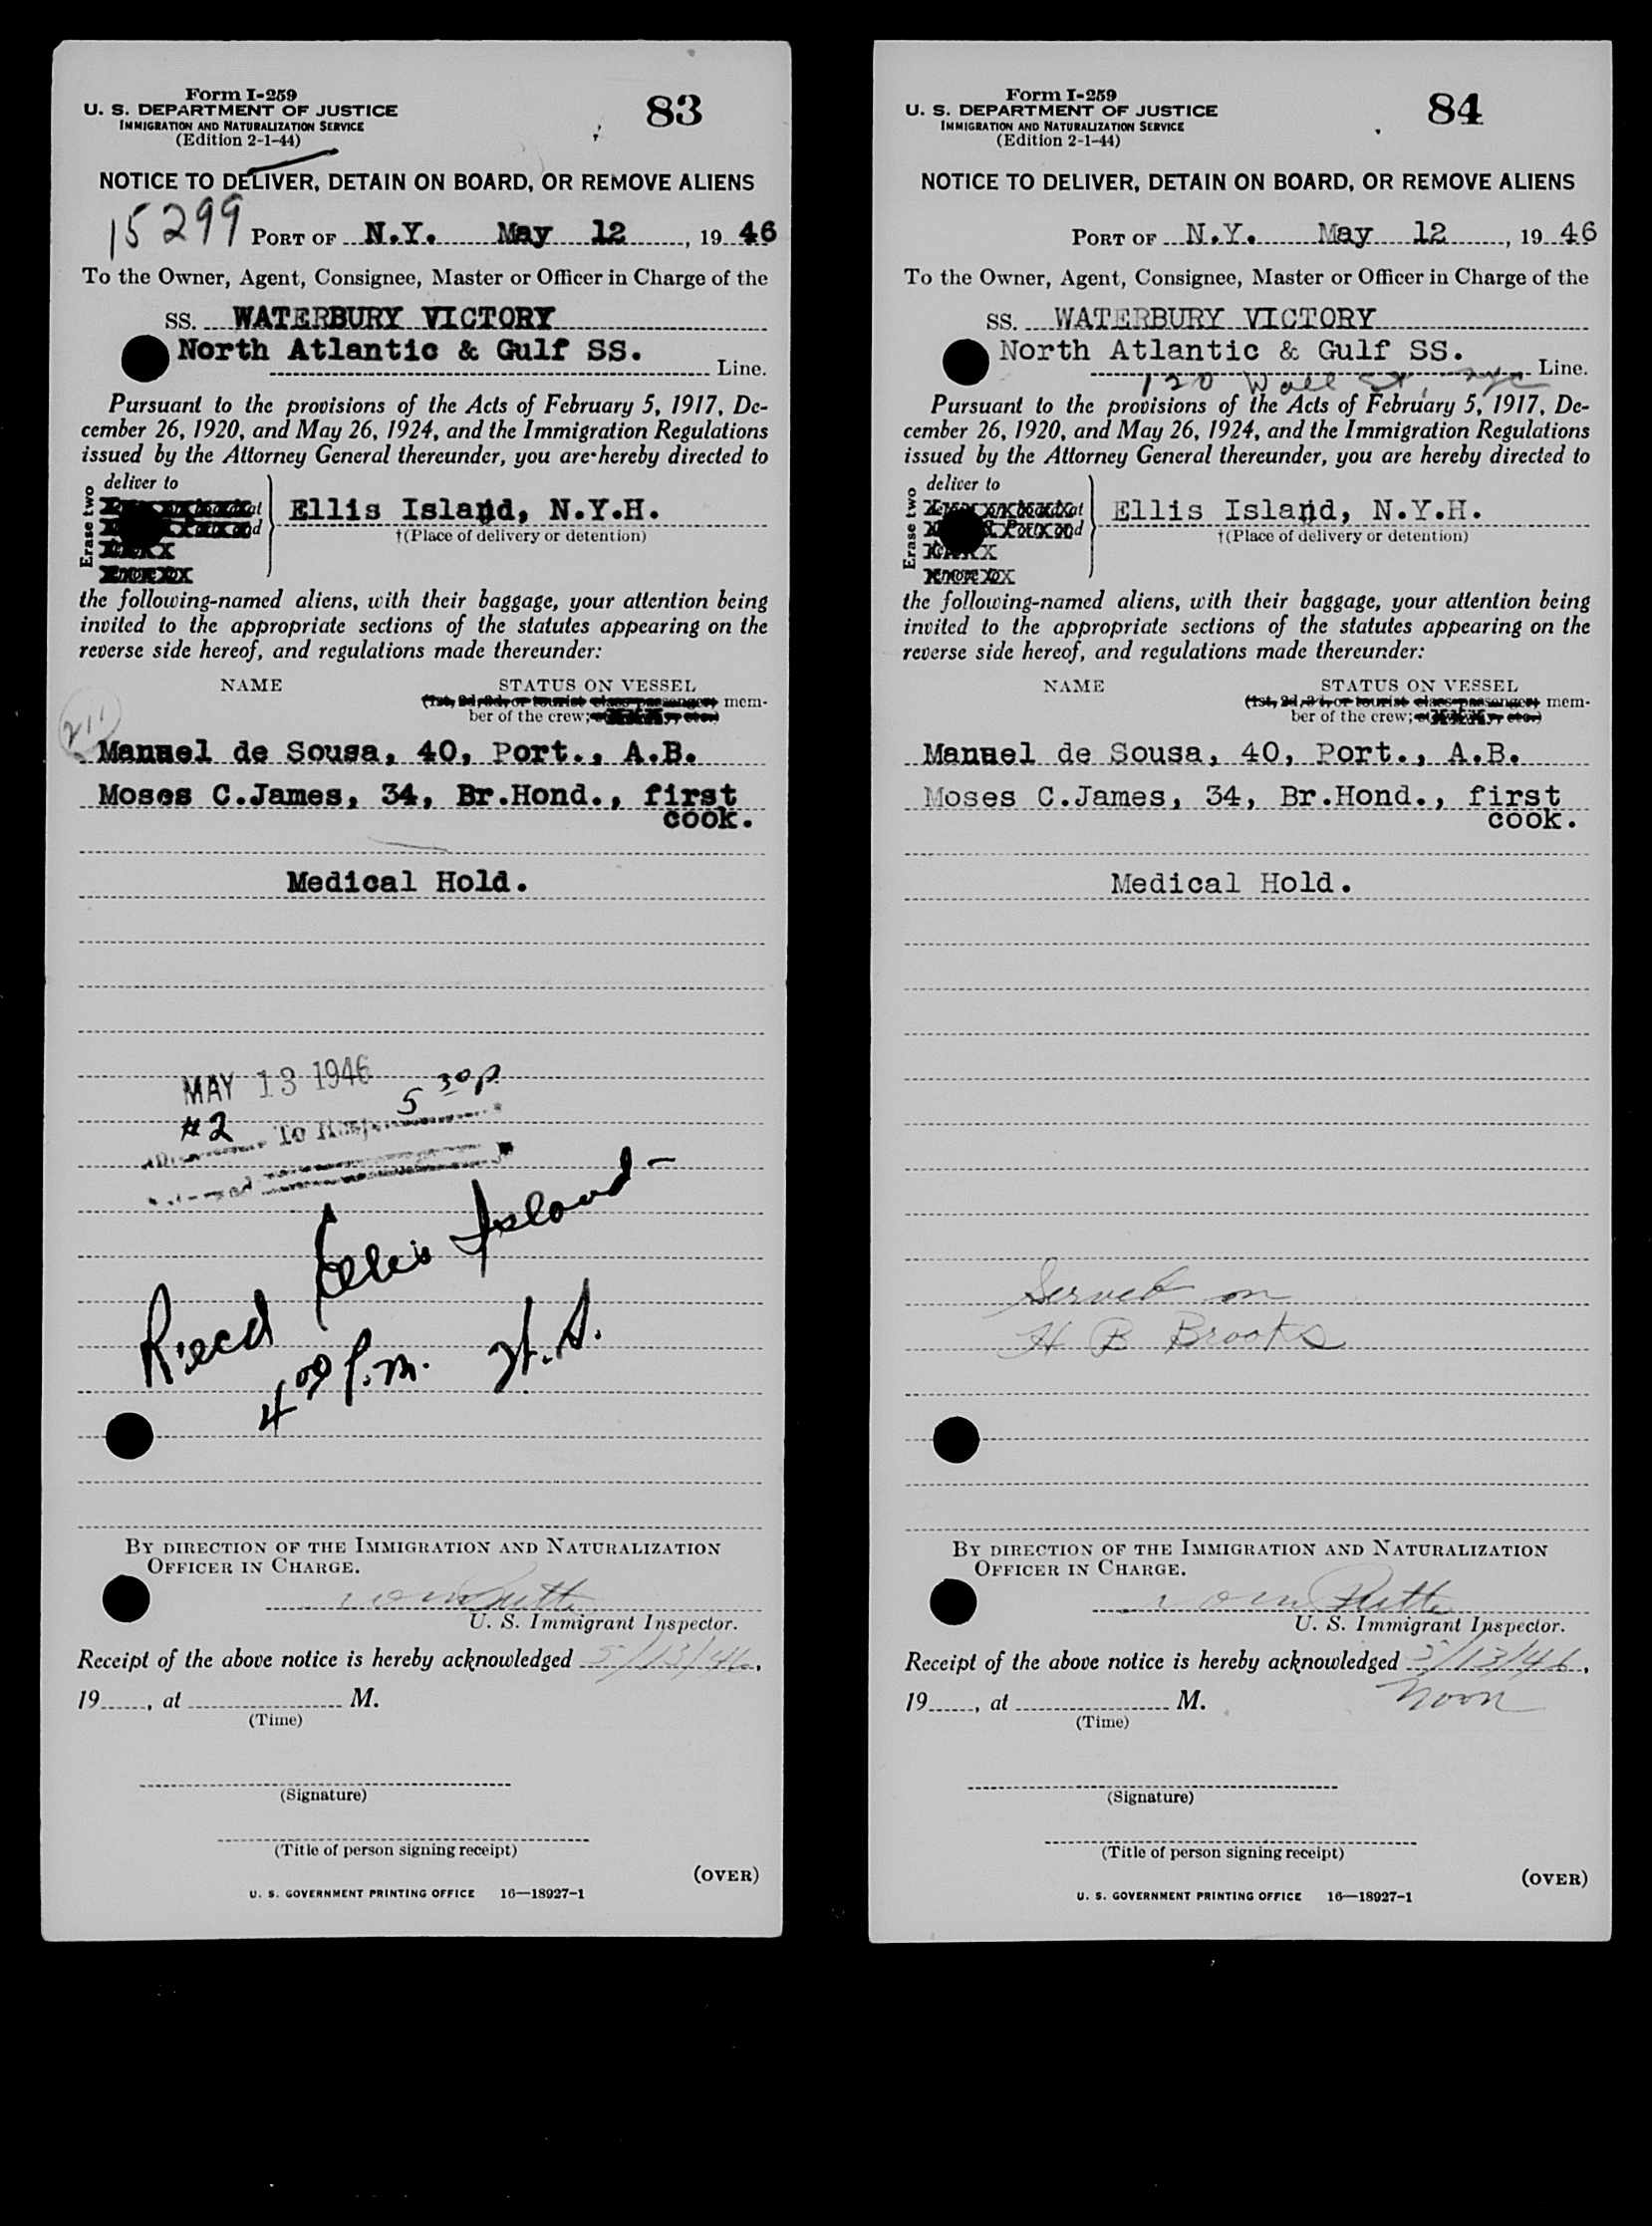 Form I-259
U. S. DEPARTMENT OF JUSTICE
IMMIGRATION AND NATURALIZATION SERVICE
(Edition 2-1-44)
83
NOTICE TO DELIVER, DETAIN ON BOARD, OR REMOVE ALIENS
15299
PORT OF N.Y. May 12, 19 46
To the Owner, Agent, Consignee, Master or Officer in Charge of the
SS. WATERBURY VICTORY
North Atlantic & Gulf SS.
Line.
Pursuant to the provisions of the Acts of February 5, 1917, De-
cember 26, 1920, and May 26, 1924, and the Immigration Regulations
issued by the Attorney General thereunder, you are hereby directed to
Erase two
deliver to
Ellis Island, N.Y.H.
†(Place of delivery or detention)
the following-named aliens, with their baggage, your attention being
invited to the appropriate sections of the statutes appearing on the
reverse side hereof, and regulations made thereunder:
NAME STATUS ON VESSEL
(1st, 2d, 3d, or tourist class passenger; mem-
ber of the crew;
211
Manuel de Sousa, 40, Port., A.B.
Moses C.James, 34, Br.Hond., first
cook.
Medical Hold.
MAY 13 1946
5 30 p.
#2
To
Recd Ellis Island-
4 00 p.m. H.S.
BY DIRECTION OF THE IMMIGRATION AND NATURALIZATION
OFFICER IN CHARGE.
U. S. Immigrant Inspector.
Receipt of the above notice is hereby acknowledged 5/13/46,
19 , at M.
(Time)
(Signature)
(Title of person signing receipt)
(OVER)
U. S. GOVERNMENT PRINTING OFFICE 16—18927-1
Form I-259
U. S. DEPARTMENT OF JUSTICE
IMMIGRATION AND NATURALIZATION SERVICE
(Edition 2-1-44)
84
NOTICE TO DELIVER, DETAIN ON BOARD, OR REMOVE ALIENS
PORT OF N.Y. May 12, 19 46
To the Owner, Agent, Consignee, Master or Officer in Charge of the
SS. WATERBURY VICTORY
North Atlantic & Gulf SS.
Line.
120 Wall St, nyc
Pursuant to the provisions of the Acts of February 5, 1917, De-
cember 26, 1920, and May 26, 1924, and the Immigration Regulations
issued by the Attorney General thereunder, you are hereby directed to
Erase two
deliver to
Ellis Island, N.Y.H.
†(Place of delivery or detention)
the following-named aliens, with their baggage, your attention being
invited to the appropriate sections of the statutes appearing on the
reverse side hereof, and regulations made thereunder:
NAME STATUS ON VESSEL
(1st, 2d, 3d, or tourist class passenger; mem-
ber of the crew;
Manuel de Sousa, 40, Port., A.B.
Moses C.James, 34, Br.Hond., first
cook.
Medical Hold.
Served on
H B Brooks
BY DIRECTION OF THE IMMIGRATION AND NATURALIZATION
OFFICER IN CHARGE.
U. S. Immigrant Inspector.
Receipt of the above notice is hereby acknowledged 5/13/46,
19 , at M. Noon
(Time)
(Signature)
(Title of person signing receipt)
(OVER)
U. S. GOVERNMENT PRINTING OFFICE 16—18927-1